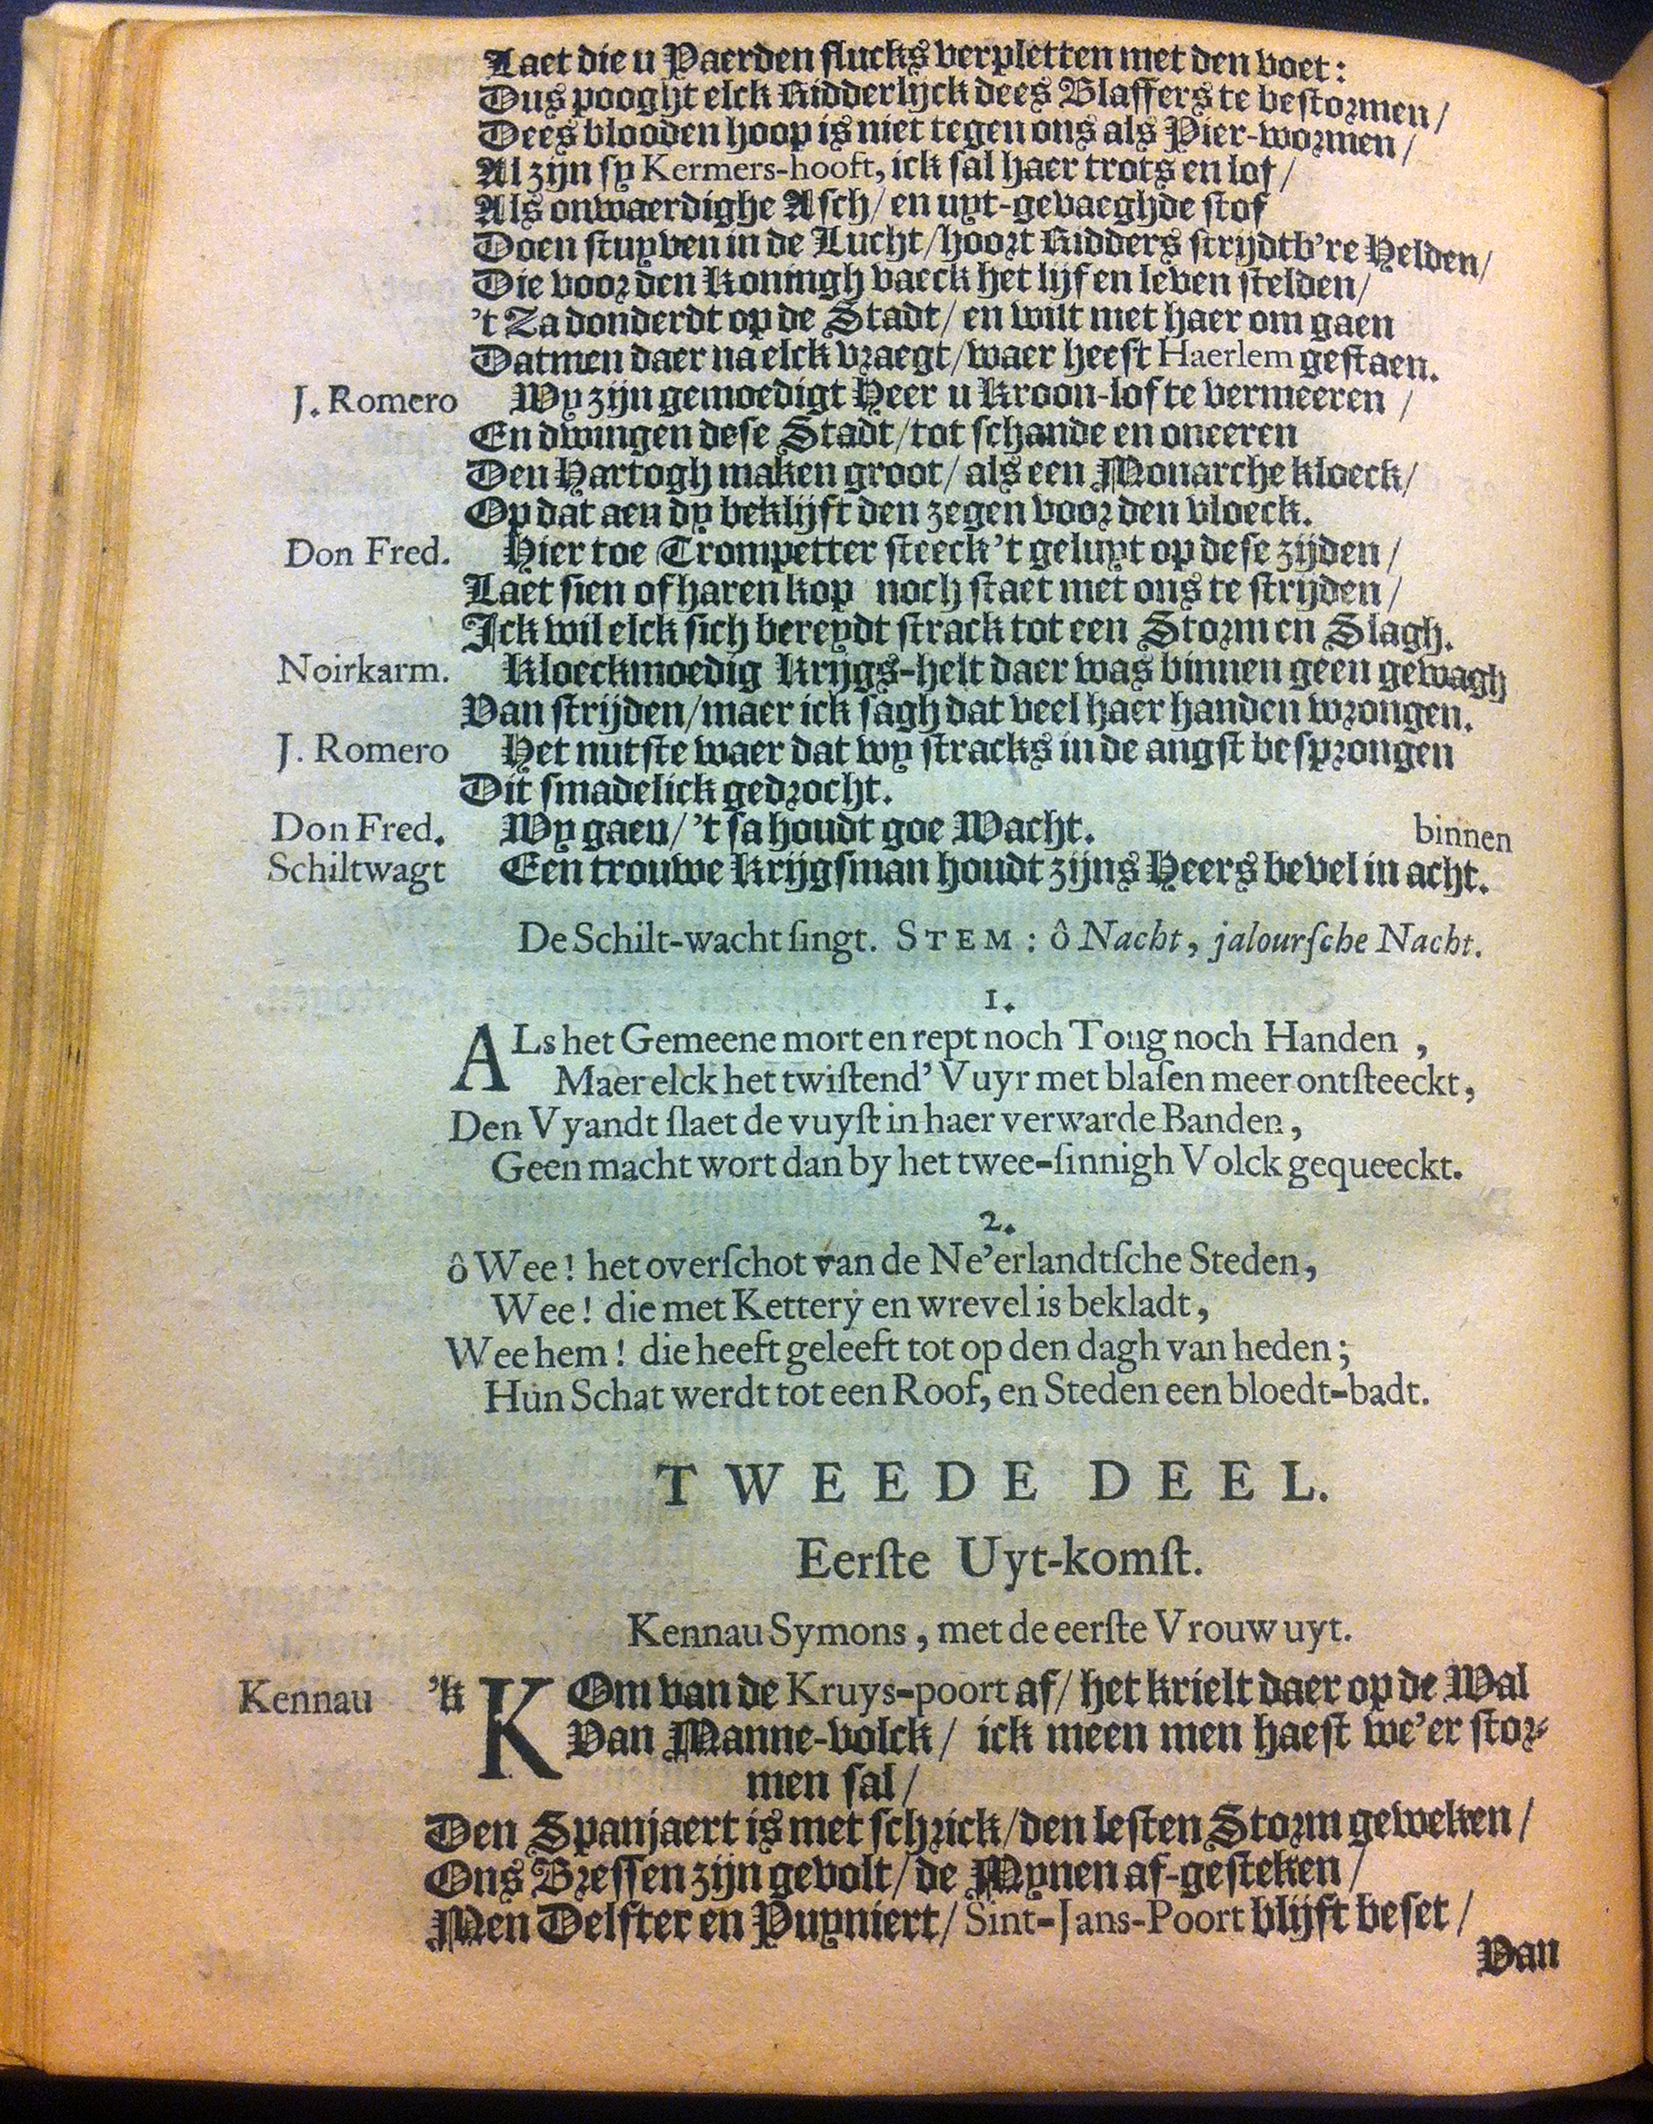 Laet die u Paerden flucks verpletten met den voet:
Dus pooght elck Ridderlijck dees Blaffers te bestormen/
Dees blooden hoop is niet tegen ons als Pier-wormen/
Al zijn sy Kermers-hooft, ick sal haer trots en lof/
Als onwaerdighe Asch/ en uyt-gevaeghde stof
Doen stuyven in de Lucht/ hoort Ridders strijdtb're Helden/
Die voor den Koningh vaeck het lijf en leven stelden/
't Za donderdt op de Stadt/ en wilt met haer om gaen
Datmen daer na elck vraegt/ waer heeft Haerlem gestaen.
J. Romero Wy zijn gemoedigt Heer u Kroon-lof te vermeeren /
En dwingen dese Stadt/ tot schande en oneeren
Den Hartogh maken groot/ als een Monarche kloeck/
Op dat aen dy beklijft den zegen voor den vloeck.
Don Fred. Hier toe Trompetter steeck 't geluyt op dese zijden /
Laet sien of haren kop noch staet met ons te strijden /
Ick wil elck sich bereydt strack tot een Storm en Slagh.
Noirkarm. Kloeckmoedig Krijgs-helt daer was binnen geen gewagh
Van strijden/ maer ick sagh dat veel haer handen wrongen.
J. Romero Het nutste waer dat wy stracks in de angst besprongen
Dit smadelick gedrocht.
Don Fred. Wy gaen/ 't sa houdt goe Wacht. binnen
Schiltwagt Een trouwe Krijgsman houdt zijns Heers bevel in acht.
De Schilt-wacht singt. STEM: ô Nacht, jaloursche Nacht.
1.
ALs het Gemeene mort en rept noch Tong noch Handen ,
Maer elck het twistend' Vuyr met blasen meer ontsteeckt,
Den Vyandt slaet de vuyst in haer verwarde Banden,
Geen macht wort dan by het twee-sinnigh Volck gequeeckt.
2.
ô Wee! het overschot van de Ne'erlandtsche Steden,
Wee! die met Kettery en wrevel is bekladt,
Wee hem! die heeft geleeft tot op den dagh van heden;
Hun Schat werdt tot een Roof, en Steden een bloedt-badt.
TWEEDE DEEL.
Eerste Uyt-komst.
Kennau Symons, met de eerste Vrouw uyt.
Kennau 'k KOm van de Kruys-poort af/ het krielt daer op de Wal
Van Manne-volck/ ick meen men haest we'er stor-
men sal/
Den Spanjaert is met schrick/ den lesten Storm geweken/
Ons Bressen zijn gevolt/ de Mynen af-gesteken/
Men Delfter en Puyniert/ Sint-Jans-Poort blijft beset/
Van